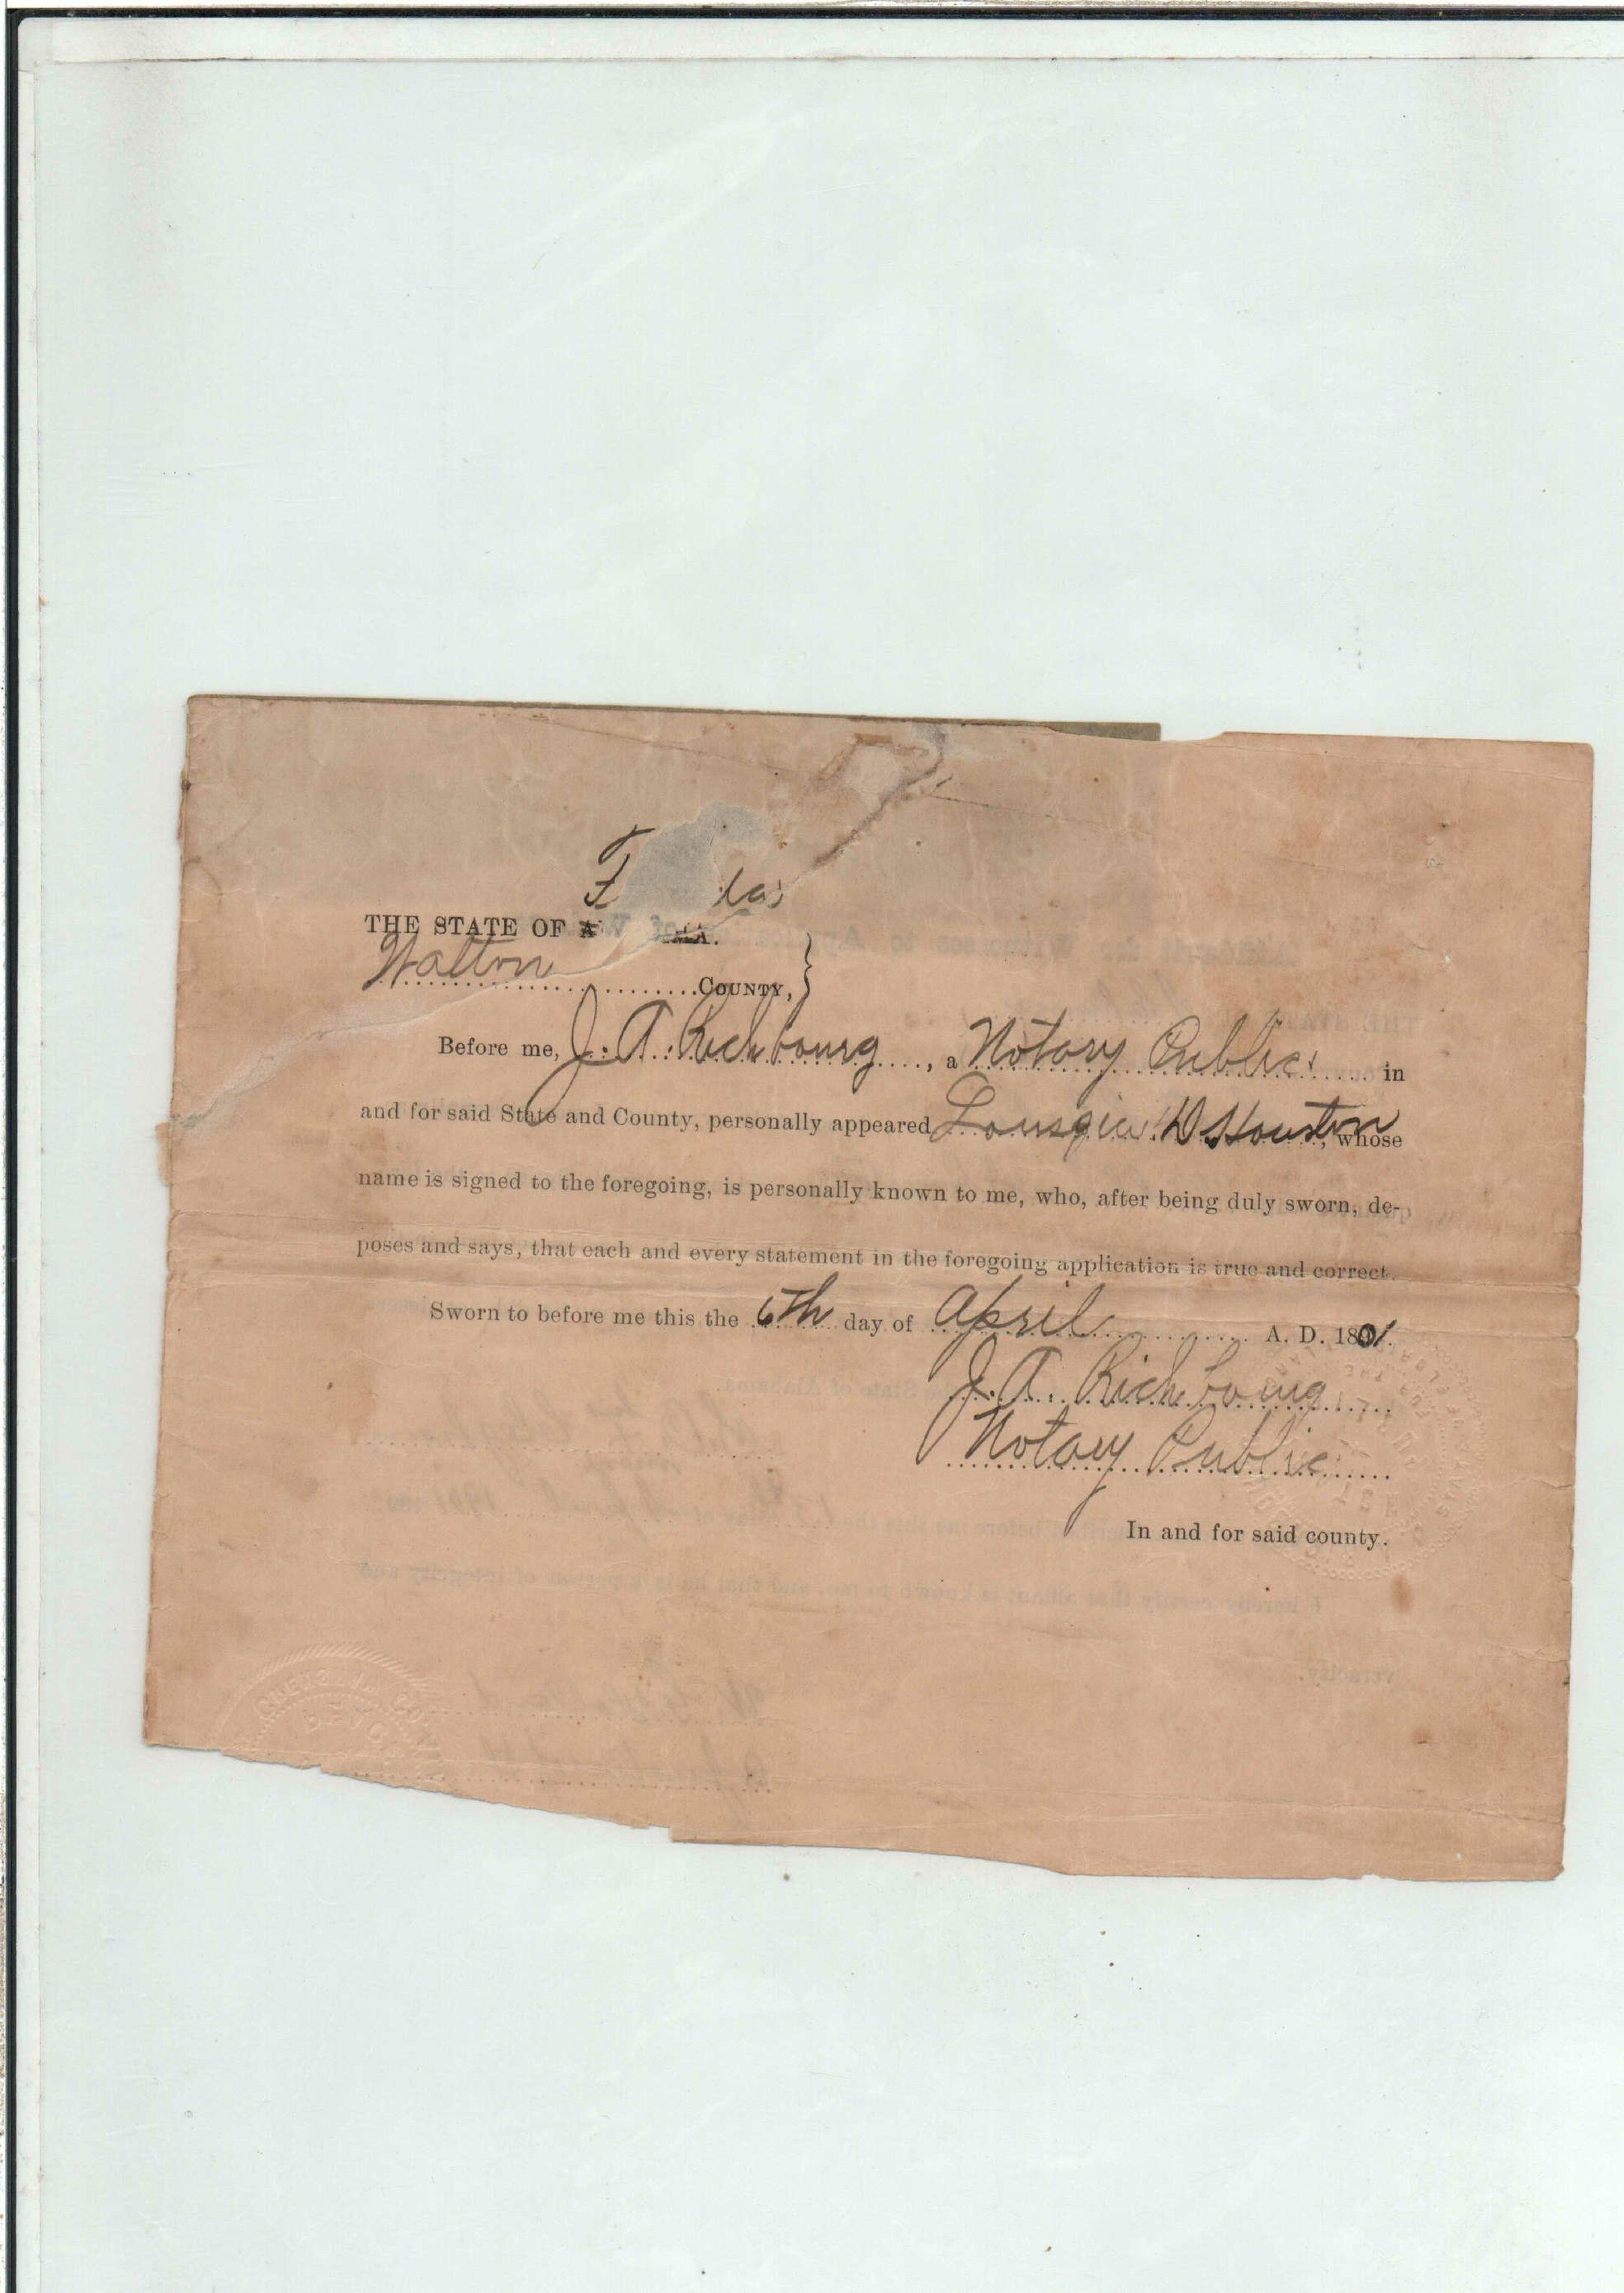 F da
THE STATE OF A MA.
Walton COUNTY, }
Before me, J. A. Richbourg, a Notary Public in
and for said State and County, personally appeared D Houston, whose
name is signed to the foregoing, is personally known to me, who, after being duly sworn, de-
poses and says, that each and every statement in the foregoing application is true and correct.
Sworn to before me this the 6th day of April A. D. 1801.
J. A. Richbourg
Notary Public
In and for said county.